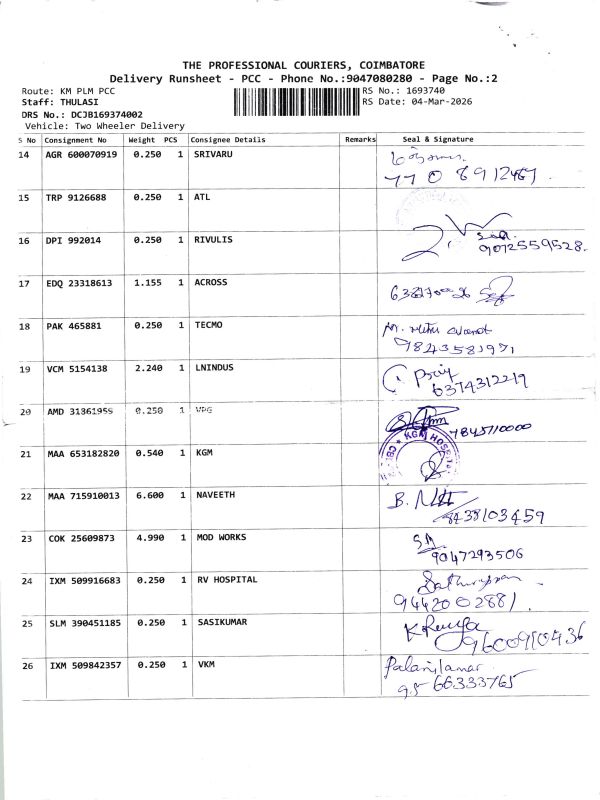 THE PROFESSIONAL COURIERS, COIMBATORE
Delivery Runsheet - PCC - Phone No.:9047080280 - Page No.:2
Route: KM PLM PCC
RS No.: 1693740
Staff: THULASI
RS Date: 04-Mar-2026
DRS No.: DCJB169374002
Vehicle: Two Wheeler Delivery
S No Consignment No Weight PCS Consignee Details Remarks Seal & Signature
14 AGR 600070919 0.250 1 SRIVARU
15 TRP 9126688 0.250 1 ATL
16 DPI 992014 0.250 1 RIVULIS
9072559528.
17 EDQ 23318613 1.155 1 ACROSS
18 PAK 465881 0.250 1 TECMO
9843581971
19 VCM 5154138 2.240 1 LNINDUS
6374312219
20 AMD 31361955 0.250 1 VPG
7845110000
21 MAA 653182820 0.540 1 KGM
KGM HOSPITAL
22 MAA 715910013 6.600 1 NAVEETH
8438103459
23 COK 25609873 4.990 1 MOD WORKS
9047293506
24 IXM 509916683 0.250 1 RV HOSPITAL
9442002881.
25 SLM 390451185 0.250 1 SASIKUMAR
K Renuga
9600910436
26 IXM 509842357 0.250 1 VKM
9566333765